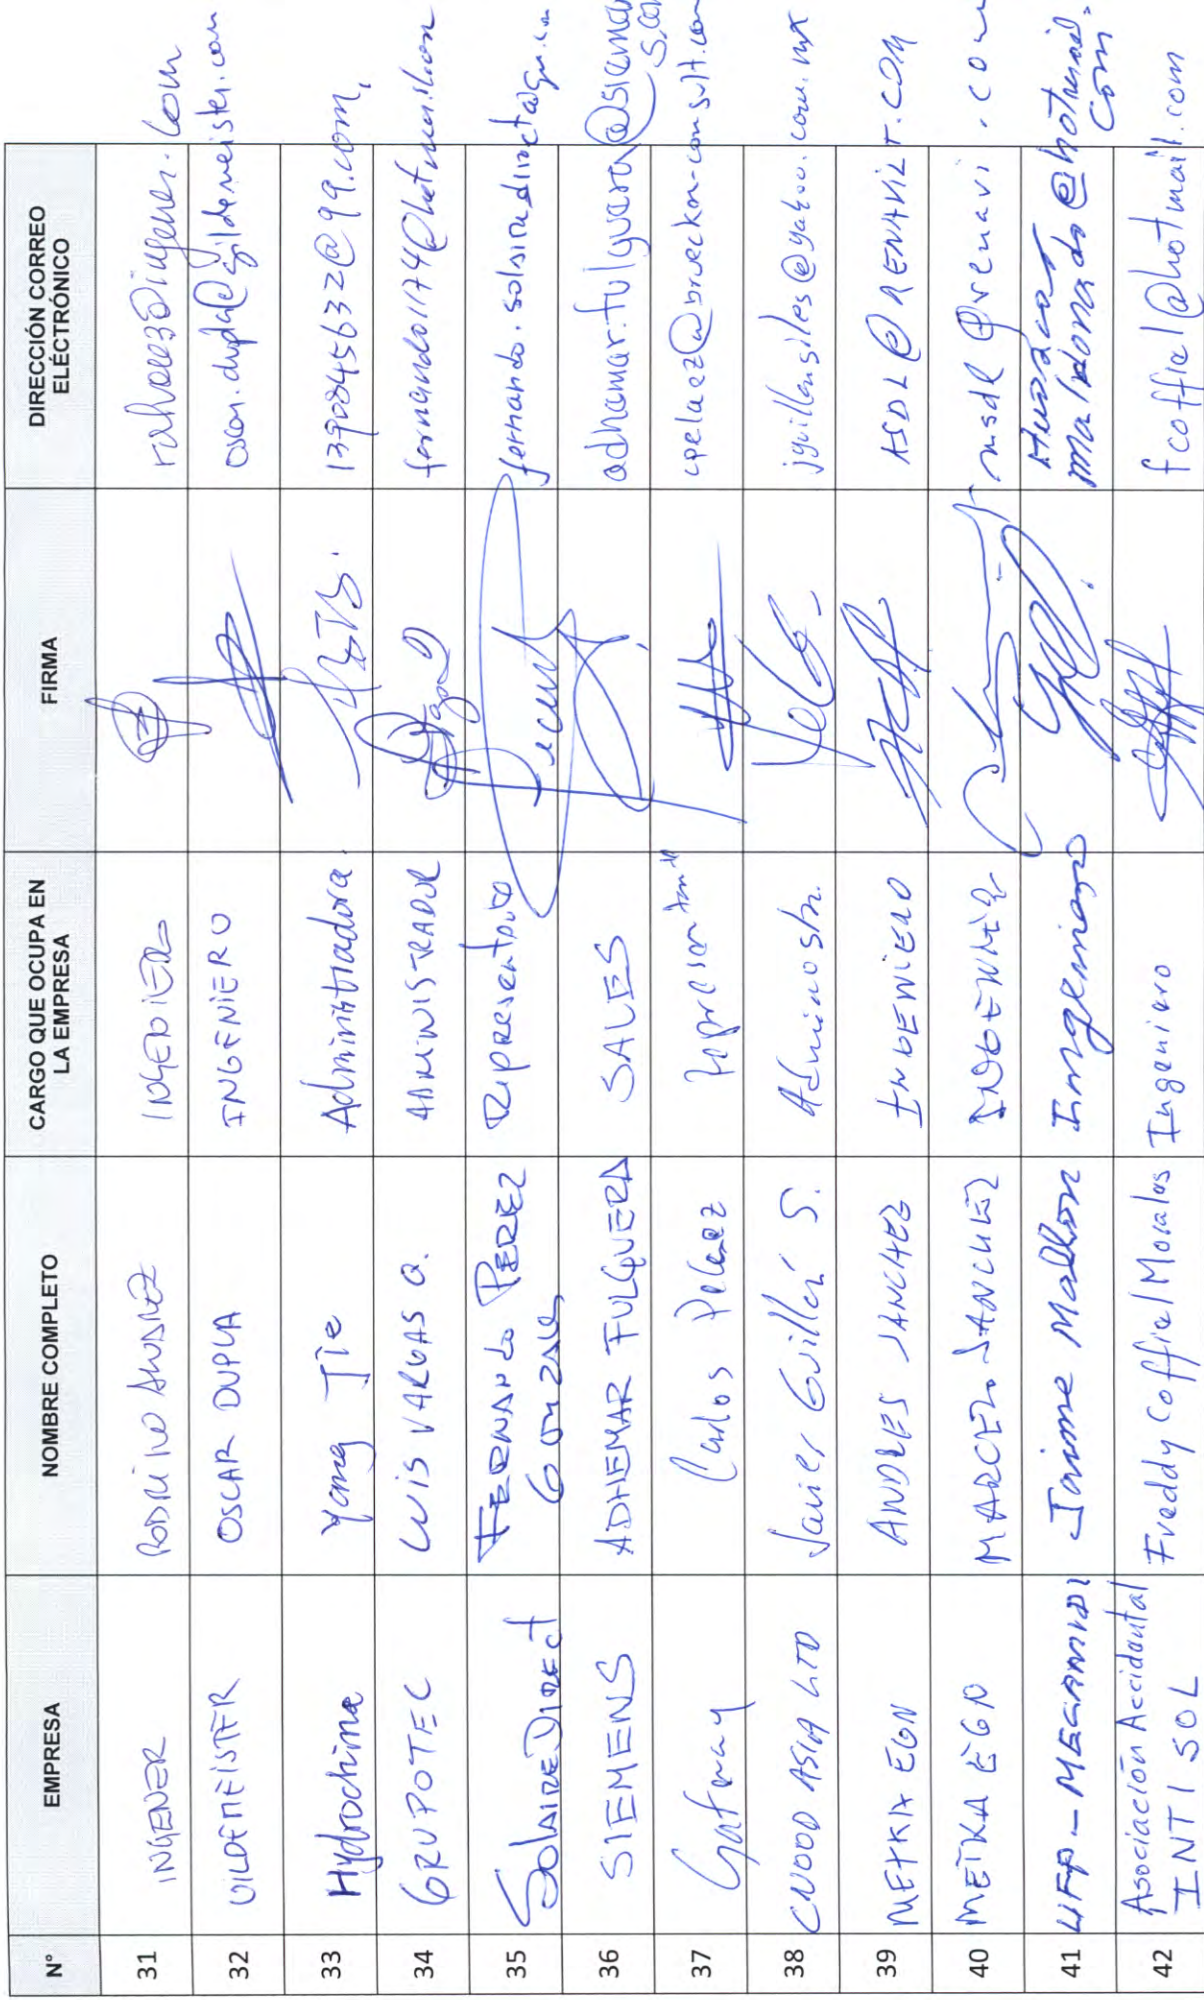 N° EMPRESA NOMBRE COMPLETO CARGO QUE OCUPA EN LA EMPRESA FIRMA DIRECCIÓN CORREO ELÉCTRÓNICO
31 INGENER INGENIERO
32 GILDEMEISTER OSCAR DUPLA INGENIERO oscar.dupla@gildemeister.com
33 Hydrochina Yang Jie Administradora 13908445632@99.com,
34 GRUPOTEC LUIS VARGAS Q. ADMINISTRADOR
35 SOLAIREDIRECT FERNANDO PEREZ GONZALES Representante
36 SIEMENS ADHEMAR FULGUERA SALES adhemar.fulguera@siemens.com
37 Carlos Pelaez Representante cpelaez@brueckon-consult.com
38 CWOOD ASIA LTD Javier Guillén S. Administr. jguillensiles@yahoo.com.mx
39 METKA EGN ANDRES SANCHEZ INGENIERO ASDL@RENAVILT.COM
40 METKA EGN MARCELO SANCHEZ INGENIERO msdl@renavi.com
41 Jaime Ingeniero maldonado@hotmail.com
42 Asociación Accidental INTI SOL Freddy Coffiel Morales Ingeniero fcoffiel@hotmail.com